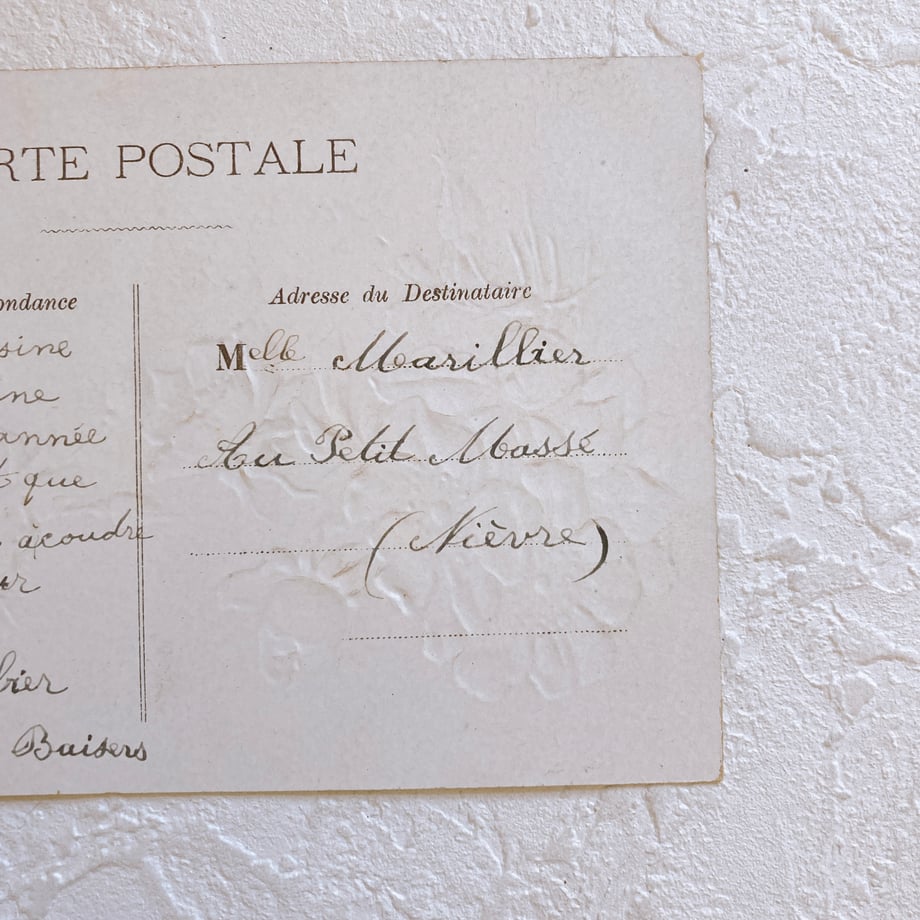 RTE POSTALE
ondance
sine
ne
année
t que
àcoudre
ur
bier
Baisers
Adresse du Destinataire
Melle Marillier
Au Petit Massé
(Nièvre)